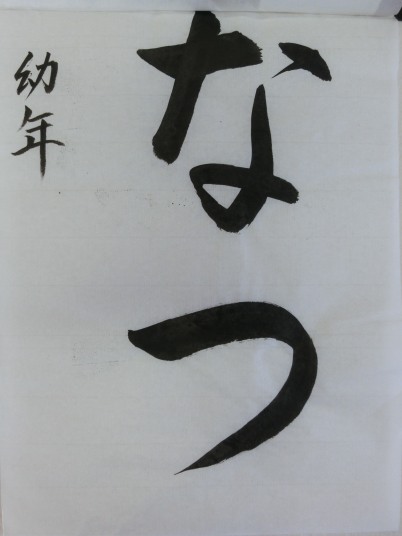 なつ
幼年